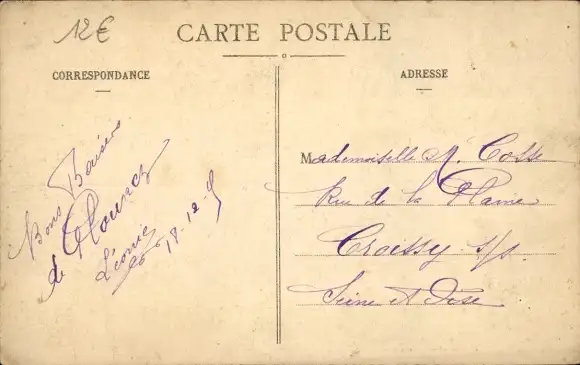 12€
CARTE POSTALE
CORRESPONDANCE
ADRESSE
Bons Baisers
de
Léonie
18-12-
Mademoiselle N. Cosse
Rue de la Plaine
Croissy s/s
Seine et Oise